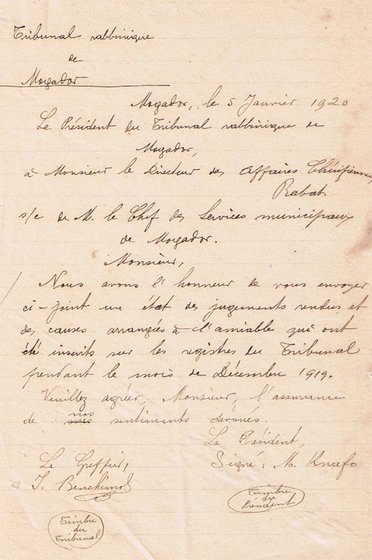 Tribunal rabbinique
de
Mogador
Mogador, le 5 Janvier 1920
Le Président du Tribunal rabbinique de
Mogador,
à Monsieur le Directeur des Affaires Chérifiennes
Rabat
s/c de M. le Chef des Services municipaux
de Mogador.
Monsieur,
Nous avons l'honneur de vous envoyer
ci-joint un état des jugements rendus et
des causes arrangées à l'amiable qui ont
été inscrits sur les registres du Tribunal
pendant le mois de Décembre 1919.
Veuillez agréer, Monsieur, l'assurance
de nos sentiments dévoués.
Le Président,
Le Greffier, Signé: M. Knafo
J. Benchimol
Timbre
du
Président
Timbre
du
Tribunal